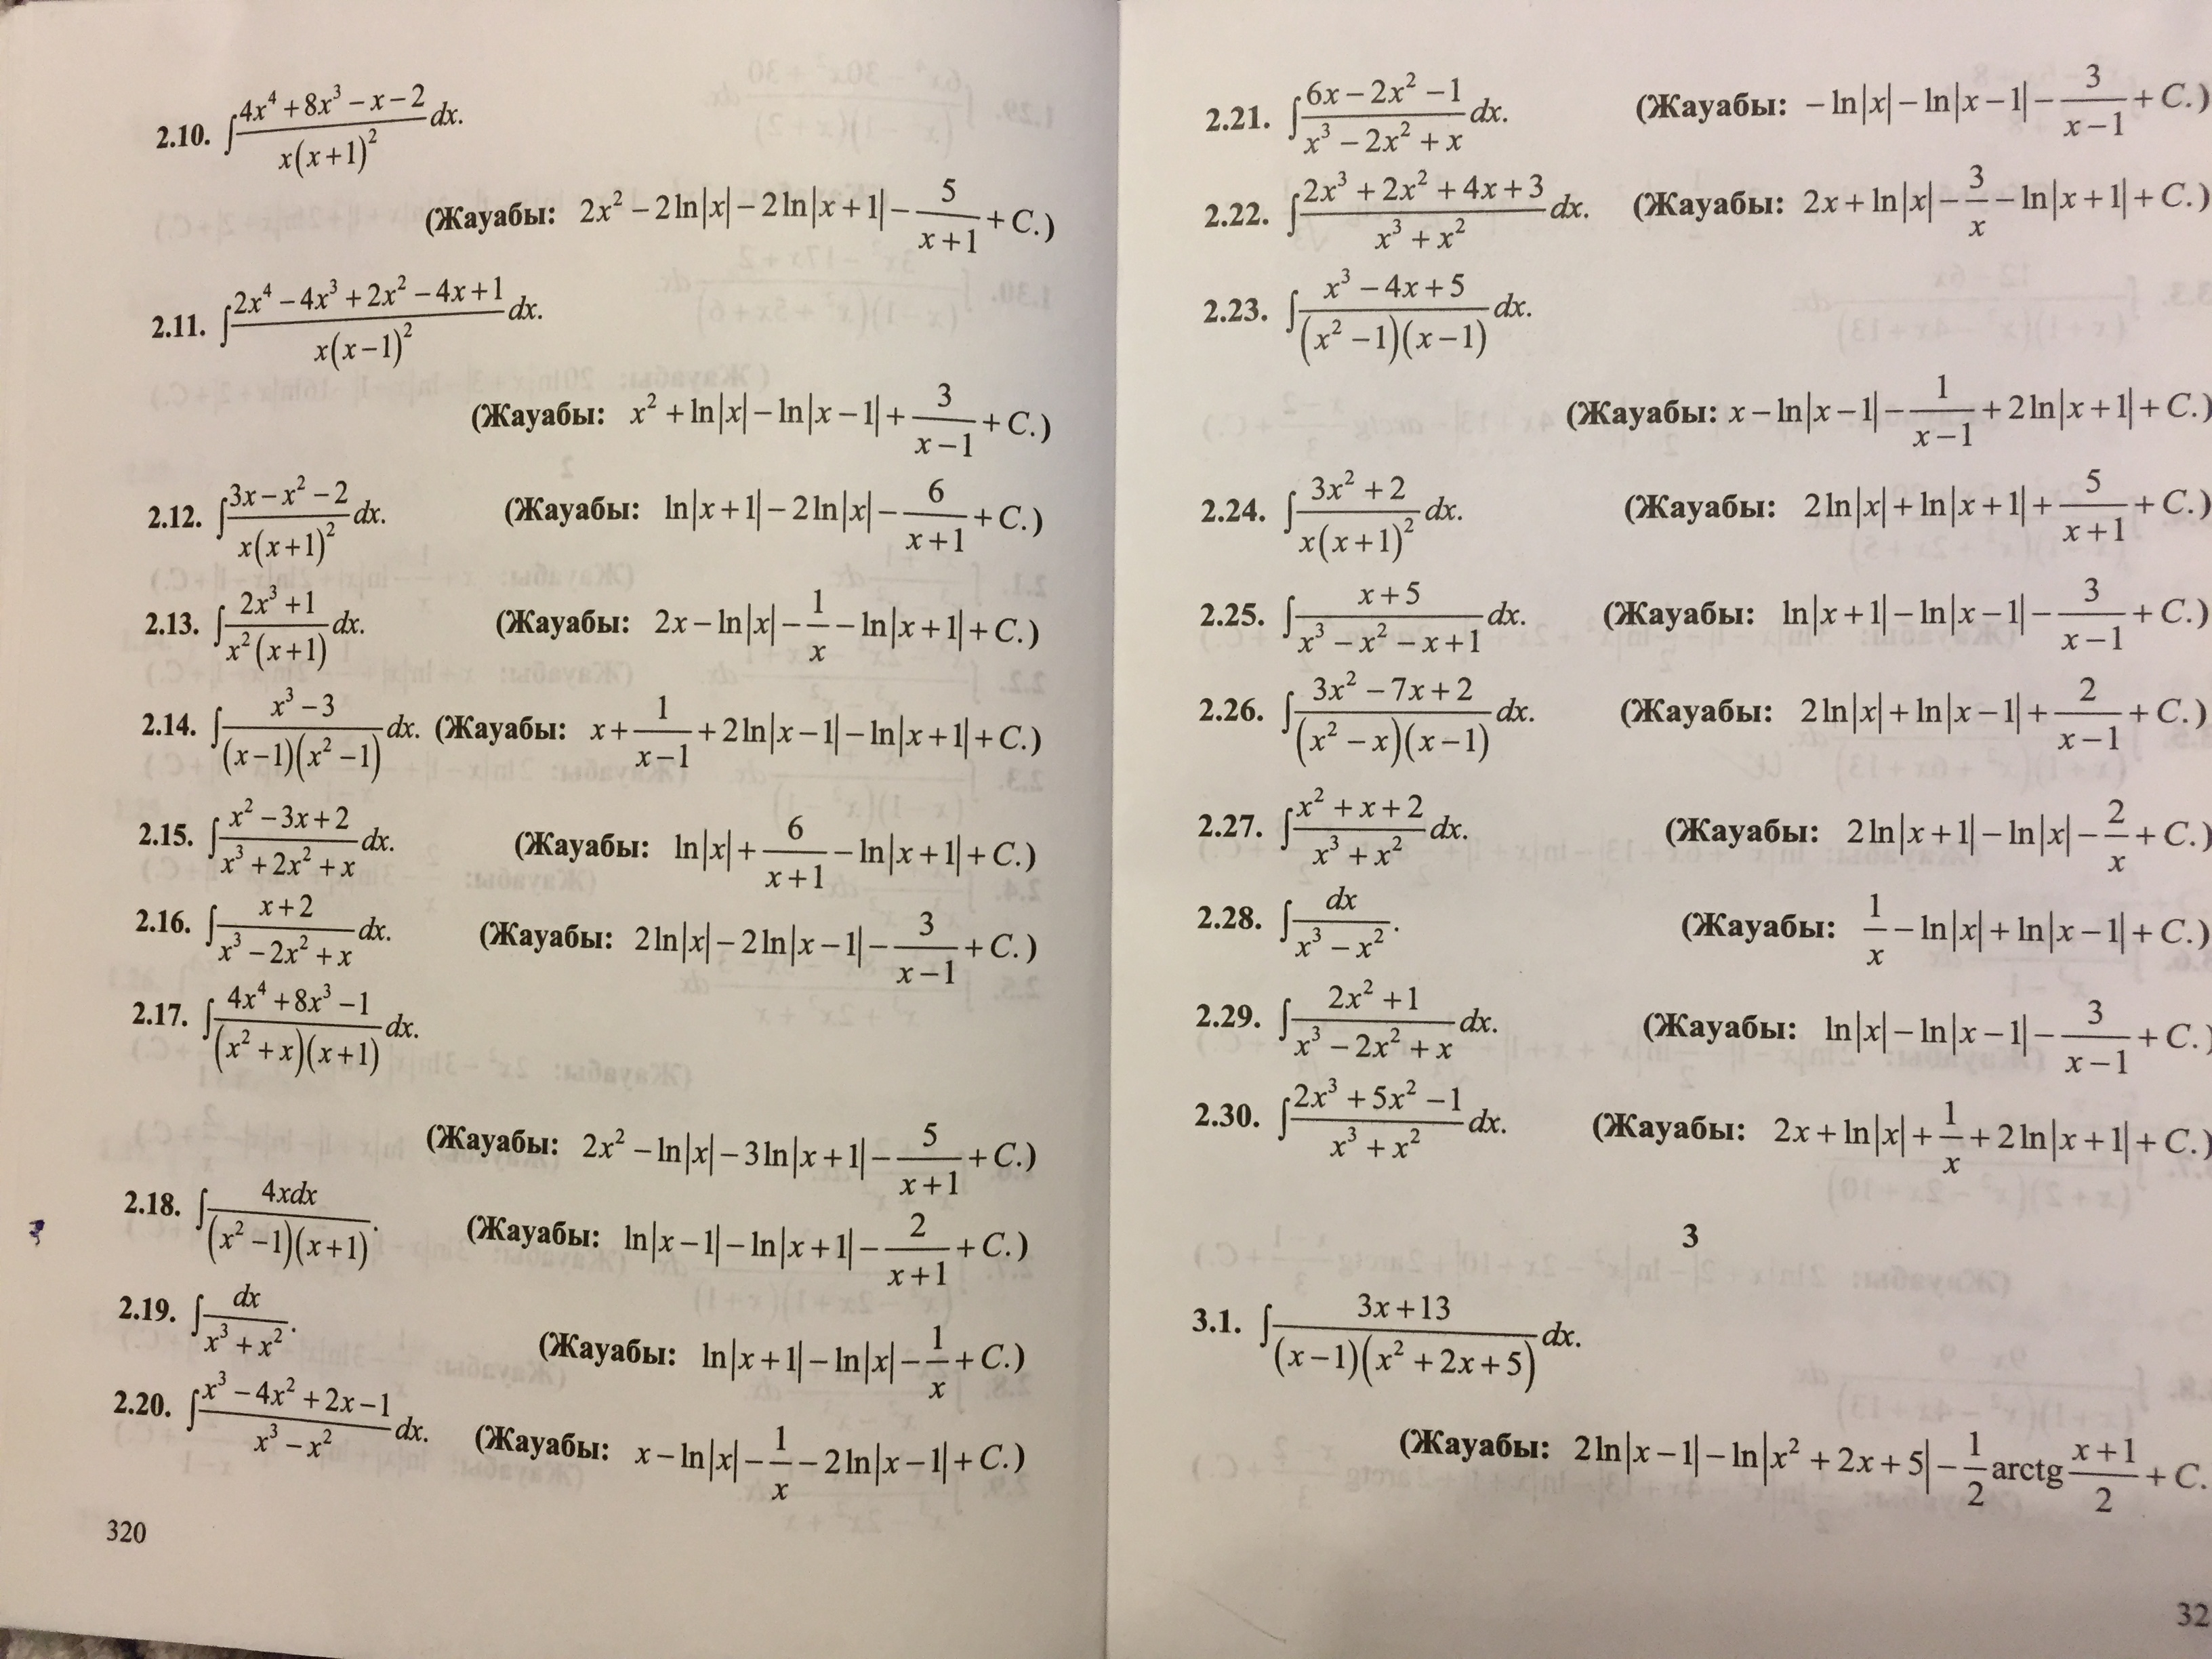 2.10. ∫ (4x⁴ + 8x³ − x − 2)/(x(x+1)²) dx.
(Жауабы: 2x² − 2ln|x| − 2ln|x+1| − 5/(x+1) + C.)
2.11. ∫ (2x⁴ − 4x³ + 2x² − 4x + 1)/(x(x−1)²) dx.
(Жауабы: x² + ln|x| − ln|x−1| + 3/(x−1) + C.)
2.12. ∫ (3x − x² − 2)/(x(x+1)²) dx. (Жауабы: ln|x+1| − 2ln|x| − 6/(x+1) + C.)
2.13. ∫ (2x³ + 1)/(x²(x+1)) dx. (Жауабы: 2x − ln|x| − 1/x − ln|x+1| + C.)
2.14. ∫ (x³ − 3)/((x−1)(x²−1)) dx. (Жауабы: x + 1/(x−1) + 2ln|x−1| − ln|x+1| + C.)
2.15. ∫ (x² − 3x + 2)/(x³ + 2x² + x) dx. (Жауабы: ln|x| + 6/(x+1) − ln|x+1| + C.)
2.16. ∫ (x + 2)/(x³ − 2x² + x) dx. (Жауабы: 2ln|x| − 2ln|x−1| − 3/(x−1) + C.)
2.17. ∫ (4x⁴ + 8x³ − 1)/((x² + x)(x+1)) dx.
(Жауабы: 2x² − ln|x| − 3ln|x+1| − 5/(x+1) + C.)
2.18. ∫ 4xdx/((x² − 1)(x+1)). (Жауабы: ln|x−1| − ln|x+1| − 2/(x+1) + C.)
2.19. ∫ dx/(x³ + x²). (Жауабы: ln|x+1| − ln|x| − 1/x + C.)
2.20. ∫ (x³ − 4x² + 2x − 1)/(x³ − x²) dx. (Жауабы: x − ln|x| − 1/x − 2ln|x−1| + C.)
320
2.21. ∫ (6x − 2x² − 1)/(x³ − 2x² + x) dx. (Жауабы: −ln|x| − ln|x−1| − 3/(x−1) + C.)
2.22. ∫ (2x³ + 2x² + 4x + 3)/(x³ + x²) dx. (Жауабы: 2x + ln|x| − 3/x − ln|x+1| + C.)
2.23. ∫ (x³ − 4x + 5)/((x² − 1)(x−1)) dx.
(Жауабы: x − ln|x−1| − 1/(x−1) + 2ln|x+1| + C.)
2.24. ∫ (3x² + 2)/(x(x+1)²) dx. (Жауабы: 2ln|x| + ln|x+1| + 5/(x+1) + C.)
2.25. ∫ (x + 5)/(x³ − x² − x + 1) dx. (Жауабы: ln|x+1| − ln|x−1| − 3/(x−1) + C.)
2.26. ∫ (3x² − 7x + 2)/((x² − x)(x−1)) dx. (Жауабы: 2ln|x| + ln|x−1| + 2/(x−1) + C.)
2.27. ∫ (x² + x + 2)/(x³ + x²) dx. (Жауабы: 2ln|x+1| − ln|x| − 2/x + C.)
2.28. ∫ dx/(x³ − x²). (Жауабы: 1/x − ln|x| + ln|x−1| + C.)
2.29. ∫ (2x² + 1)/(x³ − 2x² + x) dx. (Жауабы: ln|x| − ln|x−1| − 3/(x−1) + C.)
2.30. ∫ (2x³ + 5x² − 1)/(x³ + x²) dx. (Жауабы: 2x + ln|x| + 1/x + 2ln|x+1| + C.)
3
3.1. ∫ (3x + 13)/((x−1)(x² + 2x + 5)) dx.
(Жауабы: 2ln|x−1| − ln|x² + 2x + 5| − 1/2 arctg (x+1)/2 + C.
32